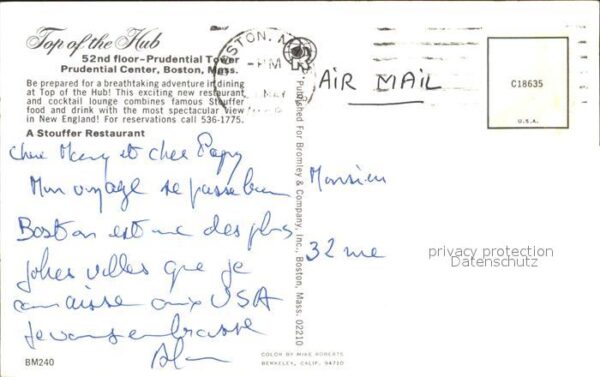 Top of the Hub
52nd floor-Prudential Tower
Prudential Center, Boston, Mass.
Be prepared for a breathtaking adventure in dining
at Top of the Hub! This exciting new restaurant
and cocktail lounge combines famous Stouffer
food and drink with the most spectacular view
in New England! For reservations call 536-1775.
A Stouffer Restaurant
Chère Mamy et cher Papy
Mon voyage se passe bien
Boston est une des plus
jolies villes que je
connaisse aux USA
Je vous embrasse
Alan
BM240
BOSTON, MA
PM
"Published For Bromley & Company, Inc., Boston, Mass. 02210
COLOR BY MIKE ROBERTS
BERKELEY, CALIF. 94710
AIR MAIL
C18635
U.S.A.
Monsieur
32 rue
privacy protection
Datenschutz